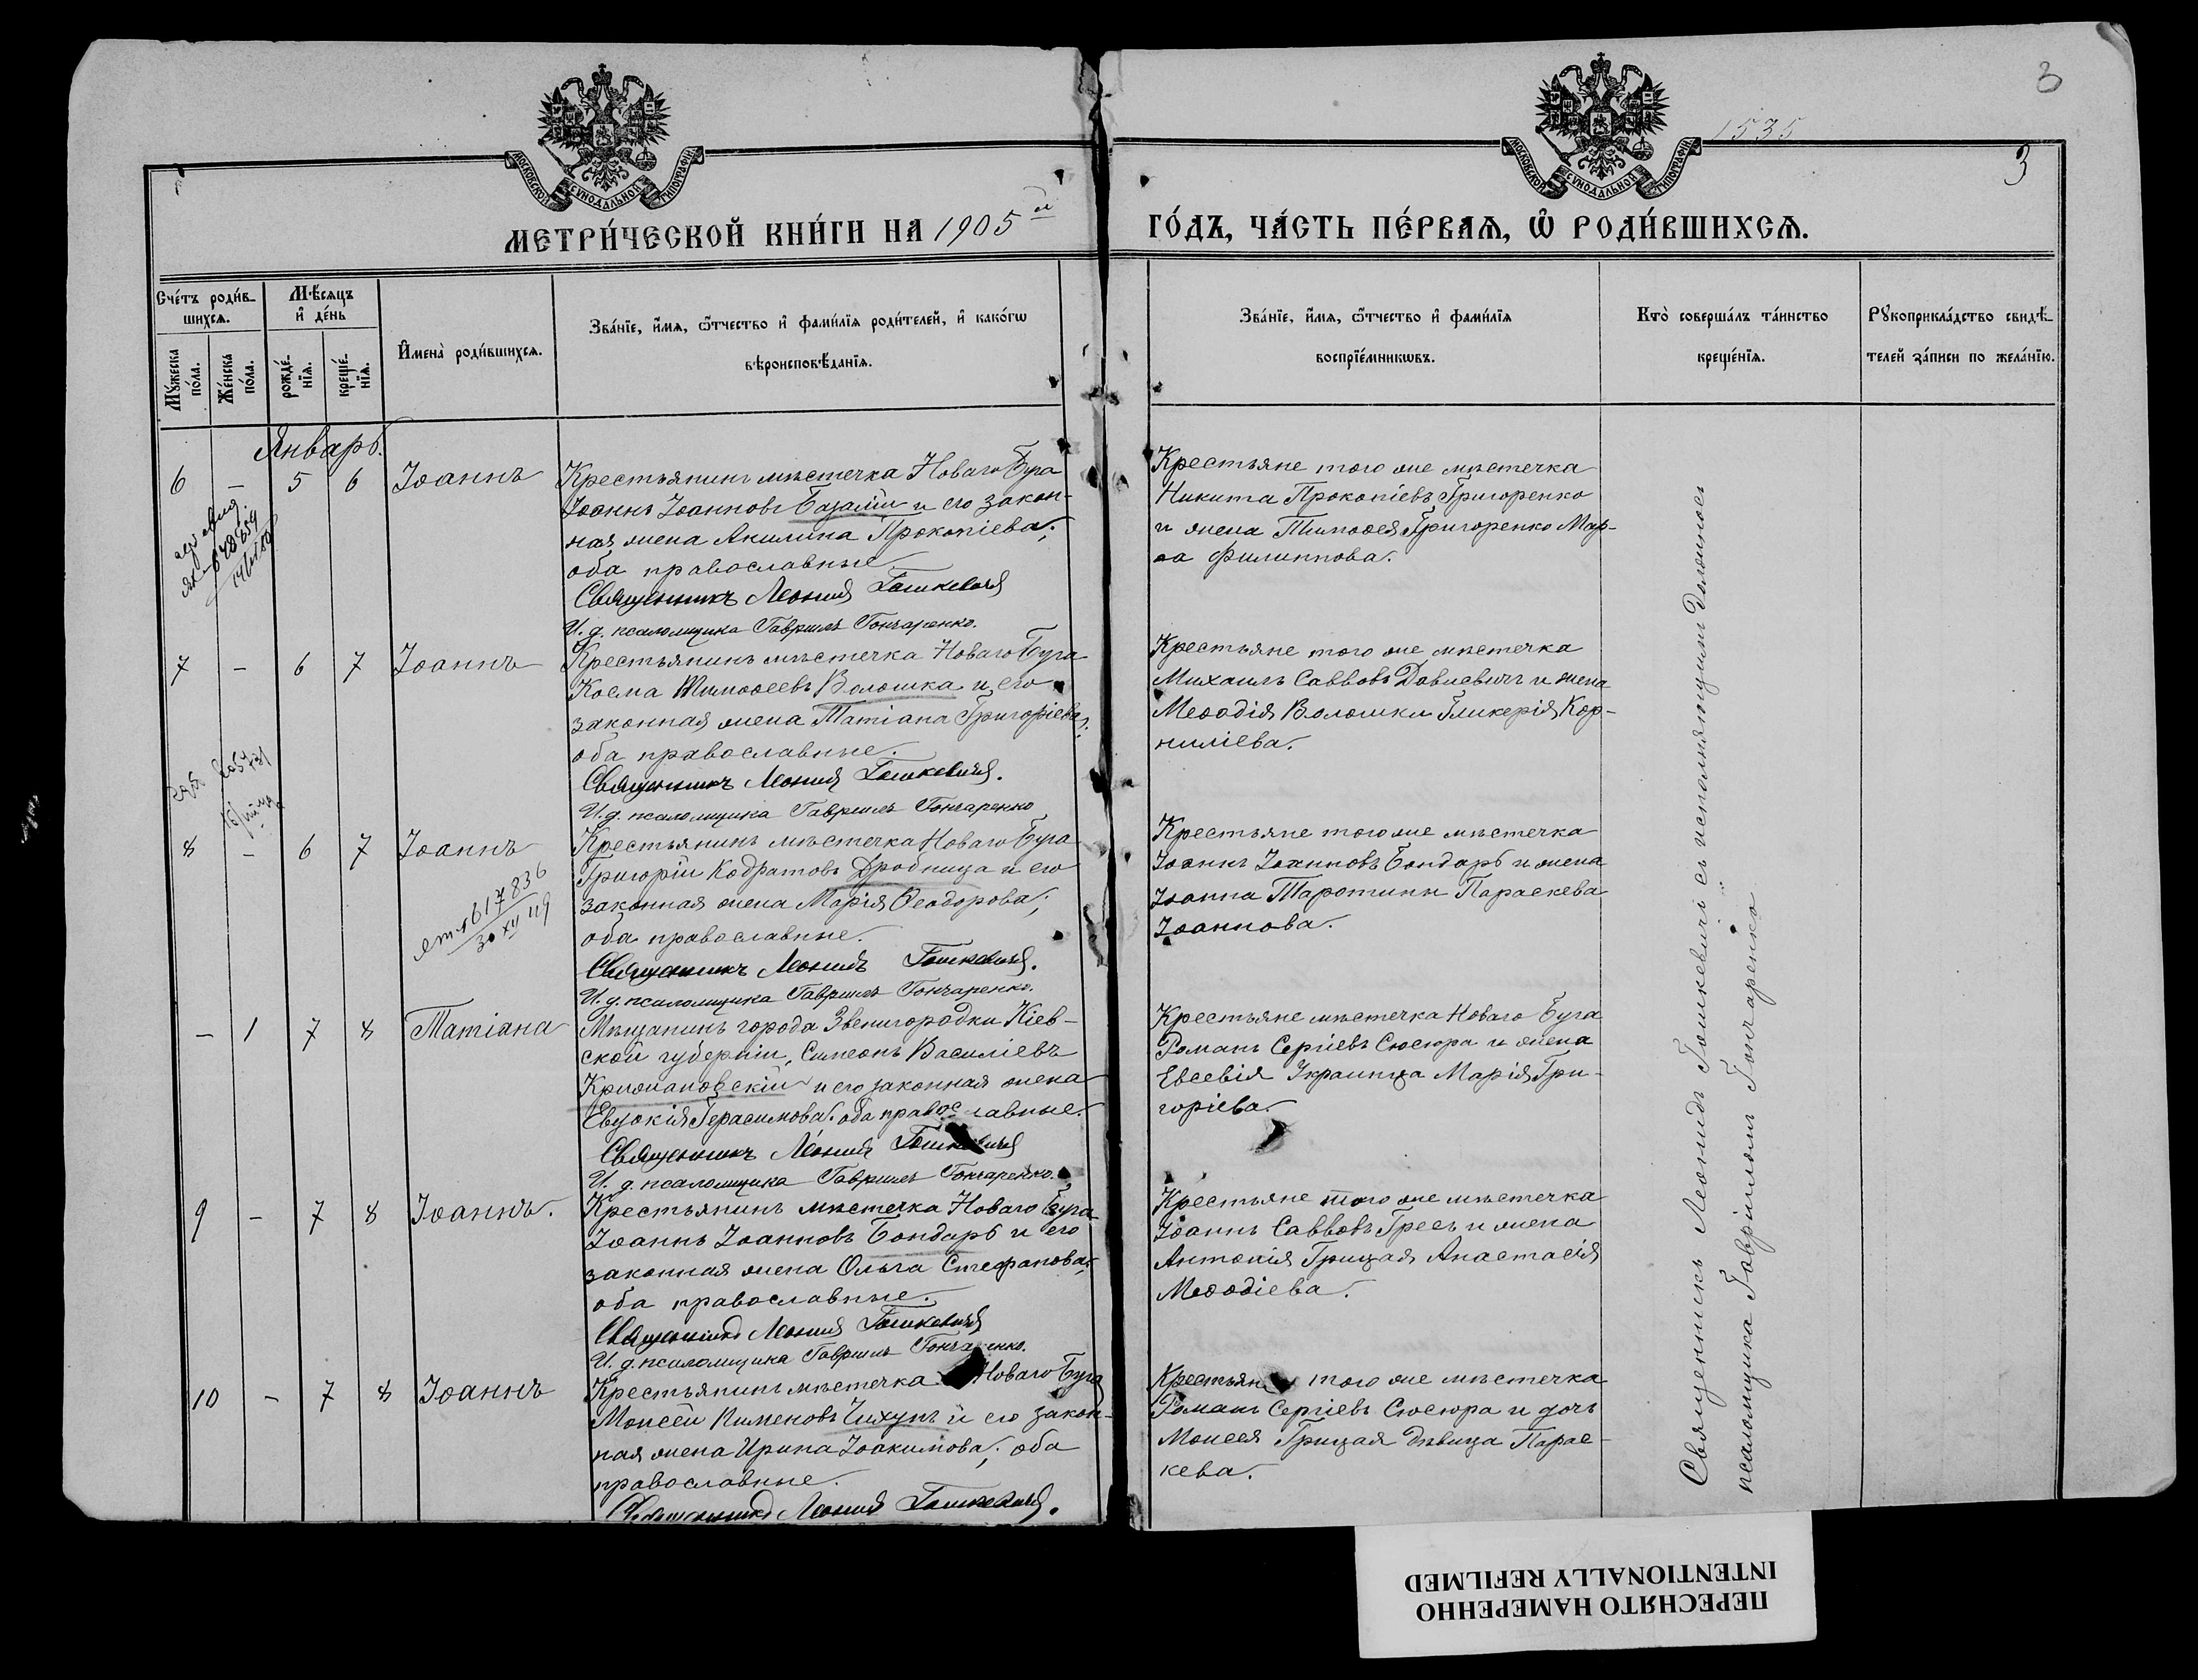 3
1535
3
МОСКОВСКОЙ СѴНОДАЛЬНОЙ ТИПОГРАФІИ
МОСКОВСКОЙ СѴНОДАЛЬНОЙ ТИПОГРАФІИ
МЕТРИ́ЧЕСКОЙ КНИ́ГИ НА 1905й
ГО́ДЪ, ЧА́СТЬ ПЕ́РВАЯ, Ѡ҆ РОДИ́ВШИХСЯ.
Сче́тъ роди́в-
шихся.
Мѣ́сяцъ
и҆ де́нь
Му́жеска
по́ла.
Же́нска
по́ла.
рожде́-
нїя.
креще́-
нїя.
И҆мена̀ роди́вшихся.
Зва́нїе, и҆́мя, ѻ҆́тчество и҆ фами́лїя роди́телей, и҆ како́гѡ
вѣроисповѣ́данїя.
Зва́нїе, и҆́мя, ѻ҆́тчество и҆ фами́лїя
воспрїе́мникѡвъ.
Кто̀ соверша́лъ та́инство
креще́нїя.
Рꙋкоприкла́дство свидѣ́-
телей за́писи по жела́нїю.
Январь.
6 - 5 6 Іоаннъ
Крестьянинъ мѣстечка Новаго Буга
Іоаннъ Іоанновъ Базалій и его закон-
ная жена Акилина Прокопіева;
оба православные
Священникъ Леонид Гошкевичъ
И. д. псаломщика Гавриилъ Гончаренко.
Крестьяне того же мѣстечка
Никита Прокопіевъ Григоренко
и жена Тимоѳея Григоренко Мар-
ѳа Филиппова.
7 - 6 7 Іоаннъ
Крестьянинъ мѣстечка Новаго Буга
Косма Тимоѳеевъ Волошка и его
законная жена Татіана Григоріева;
оба православные.
Священникъ Леонид Гошкевичъ.
И. д. псаломщика Гавриилъ Гончаренко
Крестьяне того же мѣстечка
Михаилъ Саввовъ Давлевичъ и жена
Меѳодія Волошки Гликерія Кор-
ниліева.
8 - 6 7 Іоаннъ
617836
30 XII 49
Крестьянинъ мѣстечка Новаго Буга
Григорій Кодратовъ Дробница и его
законная жена Марія Ѳеодорова;
оба православные.
Священникъ Леонидъ Гошкевичъ.
И. д. псаломщика Гавриилъ Гончаренко.
Крестьяне того же мѣстечка
Іоаннъ Іоанновъ Бондарь и жена
Іоанна Таротины Параскева
Іоаннова.
- 1 7 8 Татіана
Мѣщанинъ города Звенигородки Кіев-
ской губерніи, Симеонъ Василіевъ
Крижановскій и его законная жена
Евдокія Герасимова. оба православные.
Священникъ Леонид Гошкевичъ
И. д. псаломщика Гавриилъ Гончаренко.
Крестьяне мѣстечка Новаго Буга
Романъ Сергіевъ Сюсюра и жена
Евсевія Украинца Марія Гри-
горіева.
9 - 7 8 Іоаннъ.
Крестьянинъ мѣстечка Новаго Буга
Іоаннъ Іоанновъ Бондарь и его
законная жена Ольга Стефанова;
оба православные.
Священникъ Леонид Гошкевичъ
И. д. псаломщика Гавриилъ Гончаренко.
Крестьяне того же мѣстечка
Іоаннъ Саввовъ Гресь и жена
Антонія Грицая Анастасія
Меѳодіева.
10 - 7 8 Іоаннъ
Крестьянинъ мѣстечка Новаго Буга
Моисей Пименовъ Чихунъ и его закон-
ная жена Ирина Іоакимова; оба
православные.
Священникъ Леонид Гошкевичъ.
Крестьяне того же мѣстечка
Романъ Сергіевъ Сюсюра и дочь
Моисея Грицая дѣвица Парас-
кева.
Священникъ Леонидъ Гошкевичъ съ исполняющимъ должность
псаломщика Гавріиломъ Гончаренко
ПЕРЕСНЯТО НАМЕРЕННО
INTENTIONALLY REFILMED